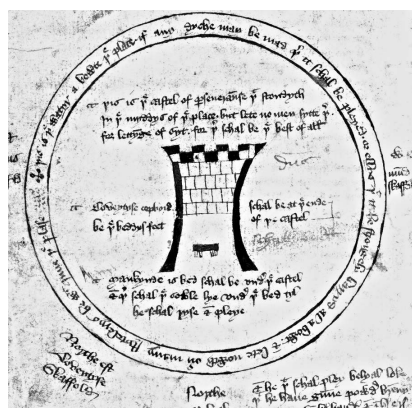 þis is þe watyr a bowte þe place if any dyche may be mad þer it schal be pleyed or ellys þt it be strongely barryd al a bowt & lete nowth ouyr many stytelerys be wt inne þe plase
þis is þe castel of perseueraunse þt stondyth
in þe myddys of þe place but lete no men sytte þer
for lettynge of syt for þer schal be þe best of all
Coveytyse copbord schal be at þe ende
be þe beddys feet of þe castel
Mankyndeis bed schal be vndyr þe castel
& þer schal þe sowle lye vndyr þe bed tyl
he schal ryse & pleye
Northe est
Coveytyse
skaffold
Northe
& he þt schal pley belyal loke
þt he haue gunne powdyr brenn